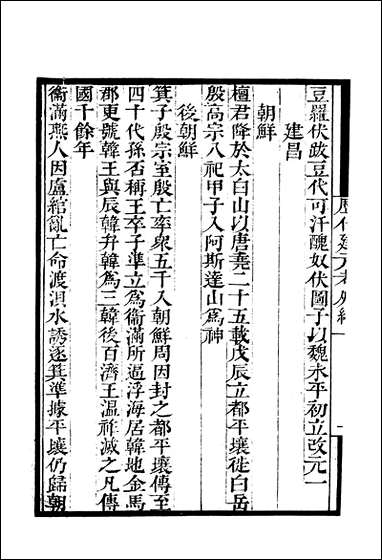 豆羅伏跋豆代可汗醜奴伏圖子以魏永平初立改元一
建昌
朝鮮
檀君降於太白山以唐堯二十五載戊辰立都平壤徙白岳
殷高宗八祀甲子入阿斯達山爲神
後朝鮮
箕子殷宗室殷亡率衆五千入朝鮮周因封之都平壤傳至
四十代孫否稱王卒子準立爲衞滿所逼浮海居韓地金馬
郡更號韓王與辰韓弁韓爲三韓後百濟王温祚滅之凡傳
國千餘年
衞滿燕人因盧綰亂亡命渡浿水誘逐箕準據平壤仍歸朝